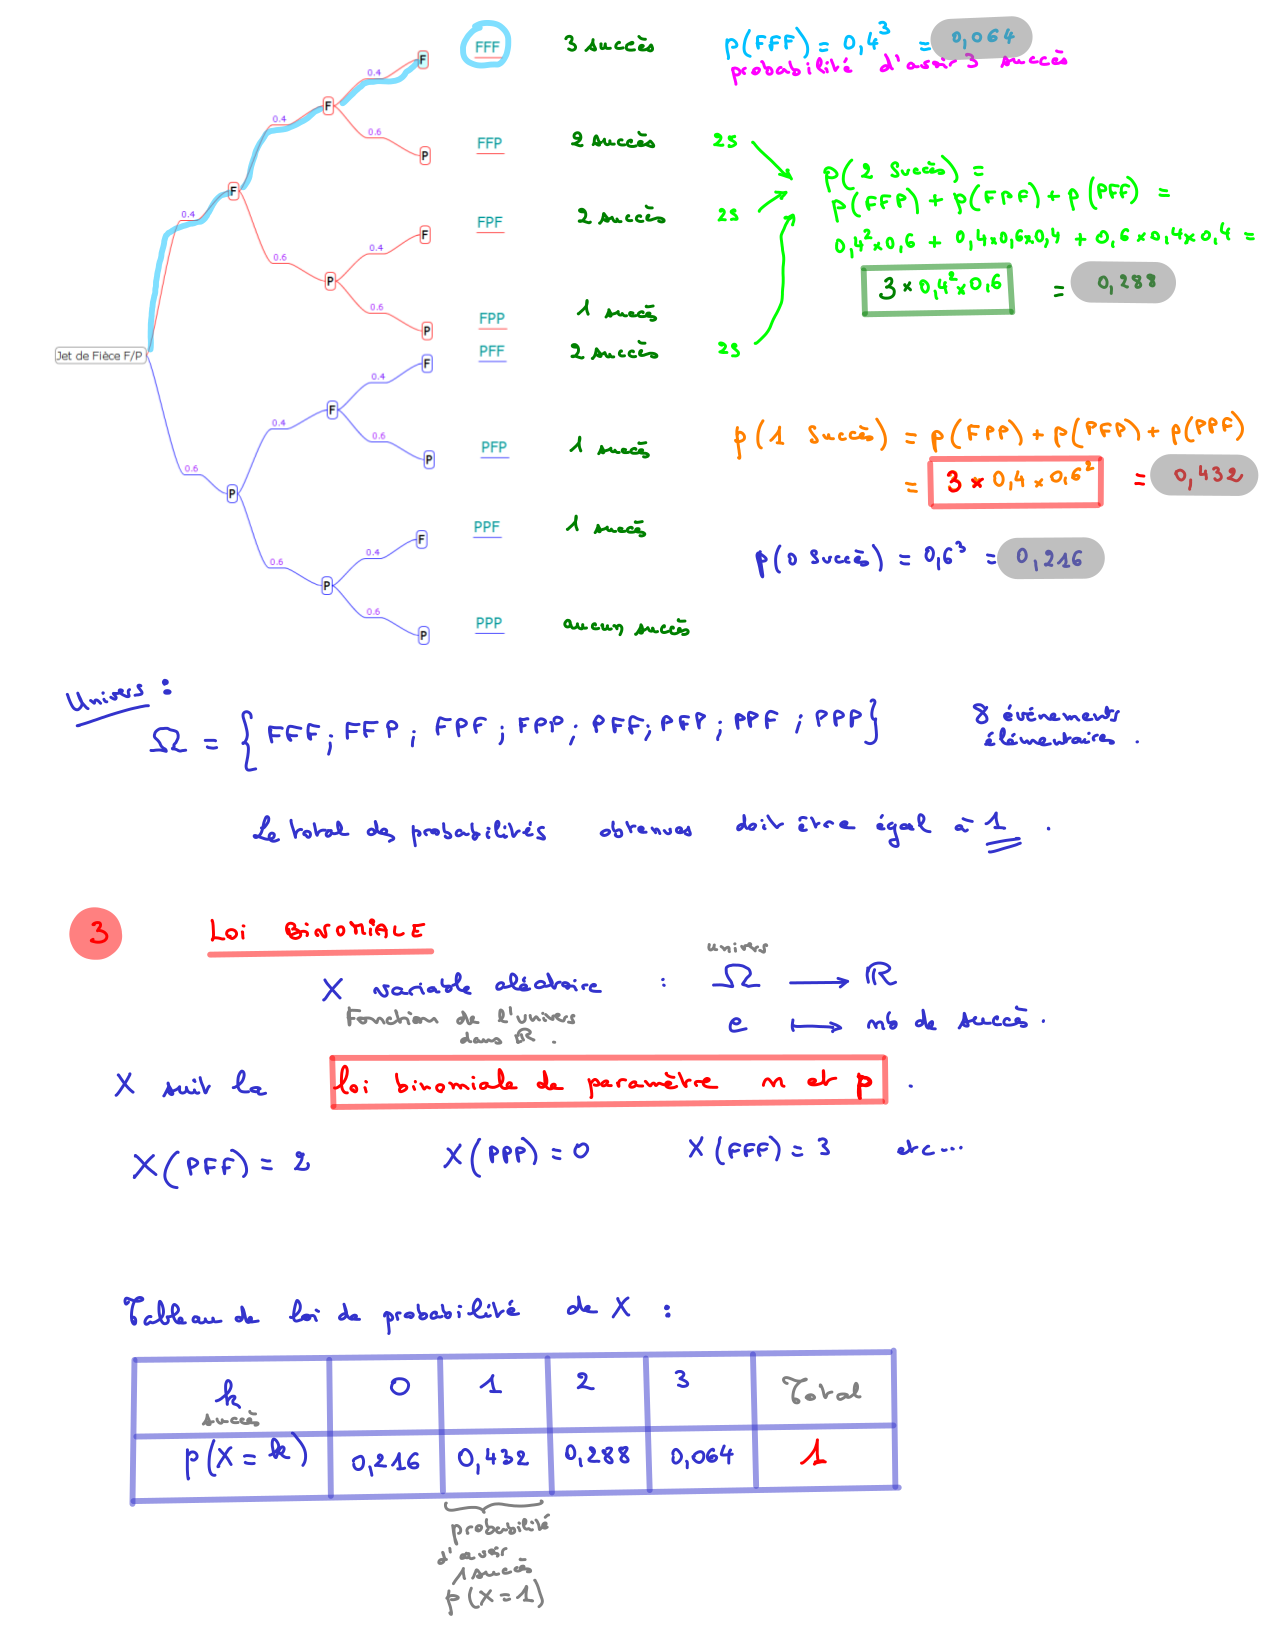 FFF 3 succès p(FFF) = 0,4³ = 0,064
probabilité d'avoir 3 succès
0.4 F
0.4 F
0.6 P FFP 2 succès 2S
p(2 Succès) =
0.4 F
p(FFP) + p(FPF) + p(PFF) =
0.4 F FPF 2 succès 2S
0,4²×0,6 + 0,4×0,6×0,4 + 0,6×0,4×0,4 =
0.6 P
3 × 0,4²×0,6 = 0,288
0.6 P FPP 1 succès
Jet de Fièce F/P
PFF 2 succès 2S
0.4 F
0.4 F
0.6 P PFP 1 succès
p(1 Succès) = p(FPP) + p(PFP) + p(PPF)
= 3 × 0,4 × 0,6² = 0,432
0.6 P
PPF 1 succès
0.4 F
p(0 Succès) = 0,6³ = 0,216
0.6 P
0.6 P PPP aucun succès
Univers :
Ω = { FFF ; FFP ; FPF ; FPP ; PFF ; PFP ; PPF ; PPP }
8 événements
élémentaires .
Le total des probabilités obtenues doit être égal à 1 .
3 LOI BINOMIALE
univers
X variable aléatoire : Ω ⟶ ℝ
Fonction de l'univers
dans ℝ .
e ⟼ nb de succès .
X suit la loi binomiale de paramètre n et p .
X(PFF) = 2 X(PPP) = 0 X(FFF) = 3 etc...
Tableau de loi de probabilité de X :
k 0 1 2 3 Total
succès
p(X = k) 0,216 0,432 0,288 0,064 1
probabilité
d'avoir
1 succès
p(X = 1)